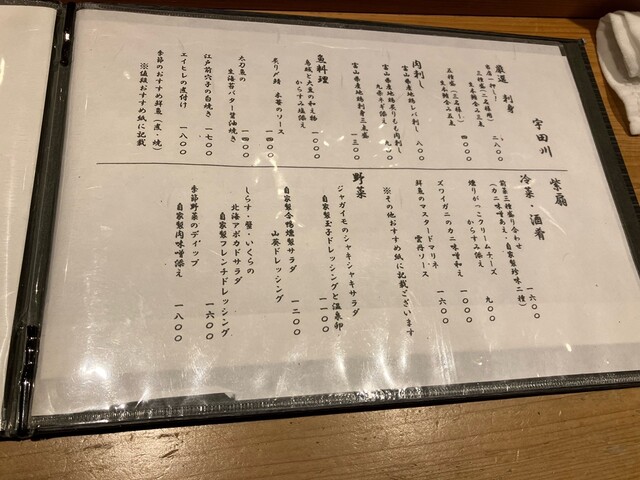 宇田川
厳選 刺身
本店一押し！
三種盛(二名様用)
生本鮪含み三点
二八〇〇
五種盛(三名様〜)
生本鮪含み五点
肉刺し
富山県産地鶏レバ刺し
八〇〇
富山県産地鶏炙りもも肉刺し
九条ネギ添え
九〇〇
富山県産地鶏刺身三点盛
一三〇〇
魚料理
鳥蛤と大葉の和え物
からすみ塩添え
一〇〇〇
炙り〆鯖 木苺のソース
太刀魚の
生海苔バター醤油焼き
一四〇〇
江戸前穴子の白焼き
一七〇〇
エイヒレの煮付け
一八〇〇
季節のおすすめ鮮魚(煮・焼)
※値段おすすめ紙に記載
紫扇
冷菜・酒肴
前菜三種盛り合わせ
(カニ味噌あえ・自家製珍味二種)
一六〇〇
燻りがっこクリームチーズ
からすみ添え
九〇〇
ズワイガニのカニ味噌和え
一〇〇〇
鮮魚のマスタードマリネ
雲丹ソース
一六〇〇
※その他おすすめ紙に記載ございます
野菜
ジャガイモのシャキシャキサラダ
自家製玉子ドレッシングと温泉卵
一一〇〇
自家製合鴨燻製サラダ
山葵ドレッシング
一二〇〇
しらす・蟹・いくらの
北海アボカドサラダ
自家製フレンチドレッシング
一六〇〇
季節野菜のディップ
自家製肉味噌添え
一八〇〇